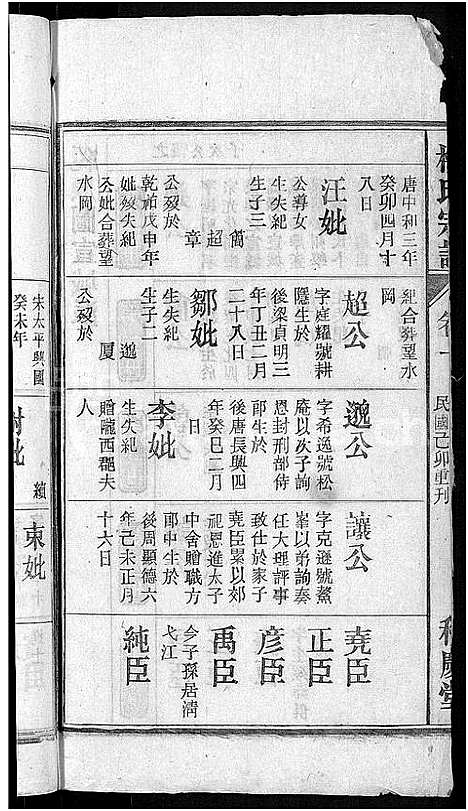 氏宗譜
卷一
民國己卯重刊
慶堂
唐中和三年
癸卯四月十
八日
汪妣
公尊女
生失紀
生子三
蕳
超
章
公歿於
乾祐戊申年
妣歿失紀
公妣合葬望
水岡
紀合葬望水
岡
超公
字庭耀號耕
隱生於
後梁貞明三
年丁丑二月
二十八日
鄒妣
生失紀
生子二
邈
厦
公歿於
邈公
字希逸號松
庵以次子詢
恩封刑部侍
郎生於
後唐長興四
年癸巳二月
日
李妣
生失紀
贈隴西郡夫
人
讓公
字克遜號鰲
峯以弟詢奏
任大理評事
致仕於家子
堯臣累以郊
祀恩進太子
中舍贈職方
郎中生於
後周顯德六
年己未正月
十六日
堯臣
正臣
彦臣
禹臣
今子孫居清
弋江
純臣
宋太平興國
癸未年
謝妣
續
東妣